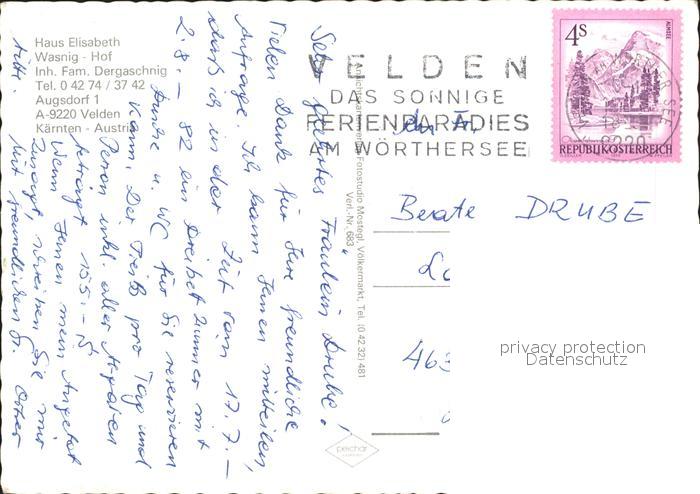 Haus Elisabeth
Wasnig - Hof
Inh. Fam. Dergaschnig
Tel. 0 42 74 / 37 42
Augsdorf 1
A-9220 Velden
Kärnten - Austria
Sehr geehrtes Fräulein Drube!
Vielen Dank für Ihre freundliche
Anfrage. Ich kann Ihnen mitteilen,
daß ich in der Zeit vom 17.7. –
2.8. – 82 ein Dreibettzimmer mit
Dusche u. WC für Sie reservieren
kann. Der Preis pro Tag und
Person inkl. aller Abgaben
beträgt 155.- S
Wenn Ihnen mein Angebot
zusagt schreiben Sie mir
bitte. Mit freundlichen G.
Ansichtskartenverlag Fotostudio Mostegl, Völkermarkt, Tel. (0 42 32) 481
Verl.-Nr. 683
VELDEN
DAS SONNIGE
FERIENPARADIES
AM WÖRTHERSEE
4S
ALMSEE
REPUBLIK ÖSTERREICH
9220
An Frl.
Beate DRUBE
463
privacy protection
Datenschutz